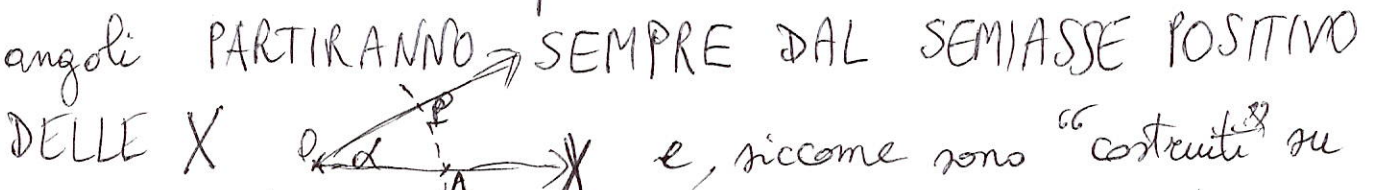 angoli PARTIRANNO SEMPRE DAL SEMIASSE POSITIVO
DELLE X O α P A X e, siccome sono "costruiti" su